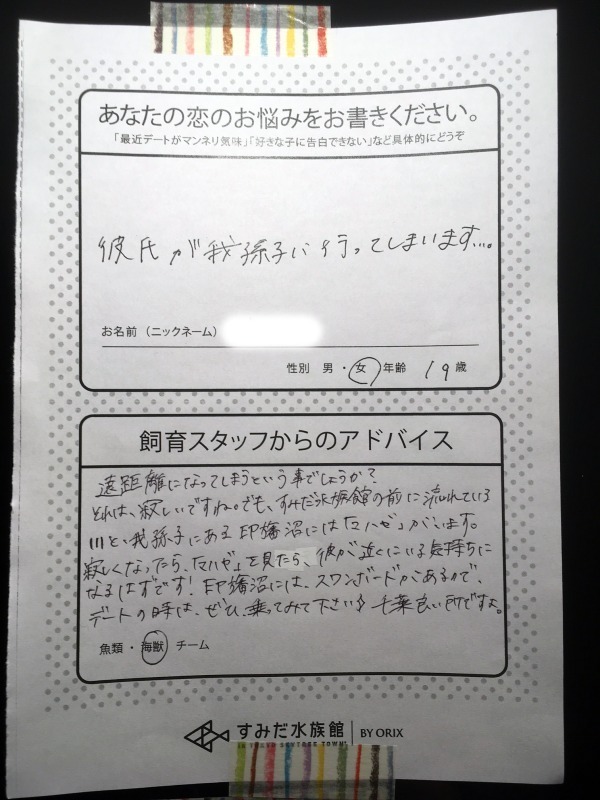 あなたの恋のお悩みをお書きください。
「最近デートがマンネリ気味」「好きな子に告白できない」など具体的にどうぞ
彼氏が我孫子に行ってしまいます...。
お名前（ニックネーム）
性別 男・女 年齢 19歳
飼育スタッフからのアドバイス
遠距離になってしまうという事でしょうか?
それは、寂しいですね。でも、すみだ水族館の前に流れている
川と、我孫子にある印旛沼には「マハゼ」がいます。
寂しくなったら、「マハゼ」を見たら、彼が近くにいる気持ちに
なるはずです!印旛沼には、スワンボートがあるので、
デートの時は、ぜひ、乗ってみて下さい♪千葉良い所ですよ。
魚類・海獣 チーム
すみだ水族館 BY ORIX
IN TOKYO SKYTREE TOWN